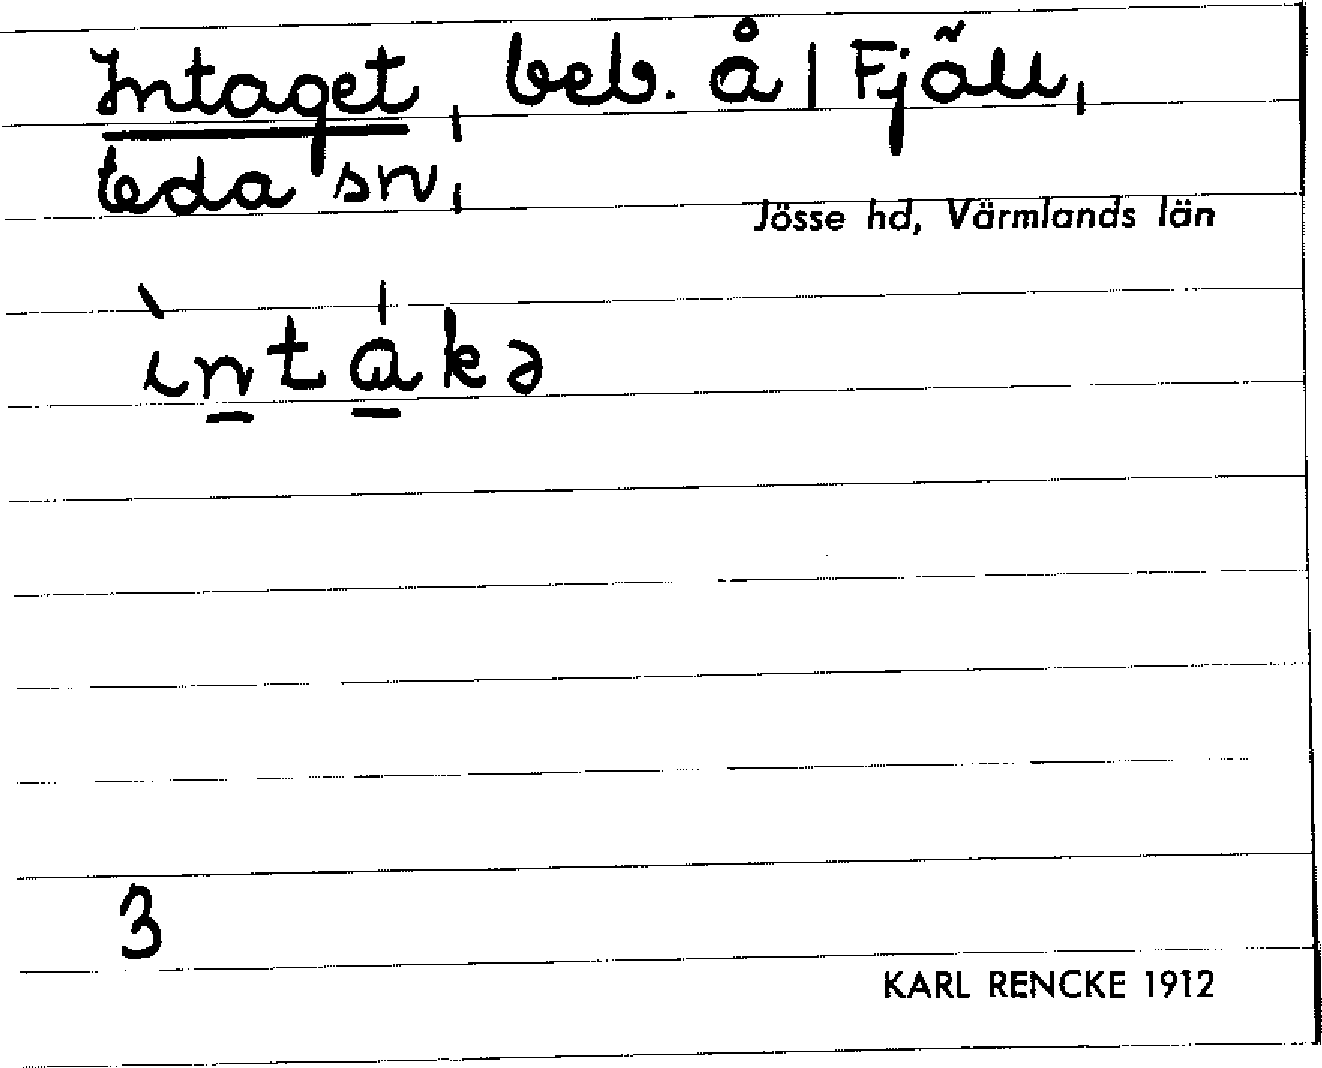 Intaget, beb. å / Fjäll,
Eda sn,
Jösse hd, Värmlands län
ìntákə
3
KARL RENCKE 1912